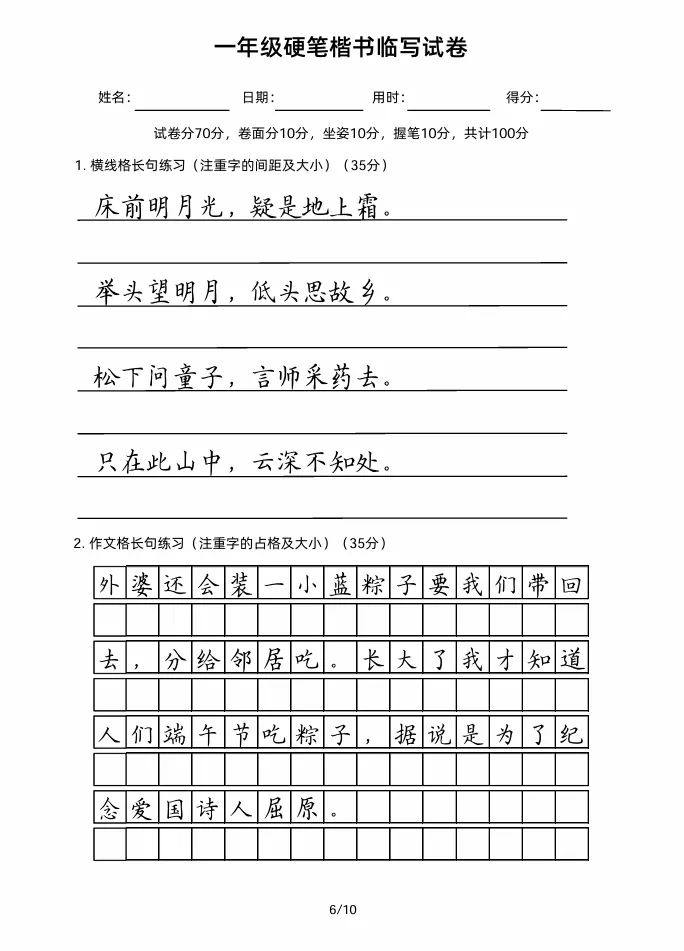 一年级硬笔楷书临写试卷
姓名: 日期: 用时: 得分:
试卷分70分，卷面分10分，坐姿10分，握笔10分，共计100分
1. 横线格长句练习（注重字的间距及大小）（35分）
床前明月光，疑是地上霜。
举头望明月，低头思故乡。
松下问童子，言师采药去。
只在此山中，云深不知处。
2. 作文格长句练习（注重字的占格及大小）（35分）
外婆还会装一小蓝粽子要我们带回
去，分给邻居吃。长大了我才知道
人们端午节吃粽子，据说是为了纪
念爱国诗人屈原。
6/10